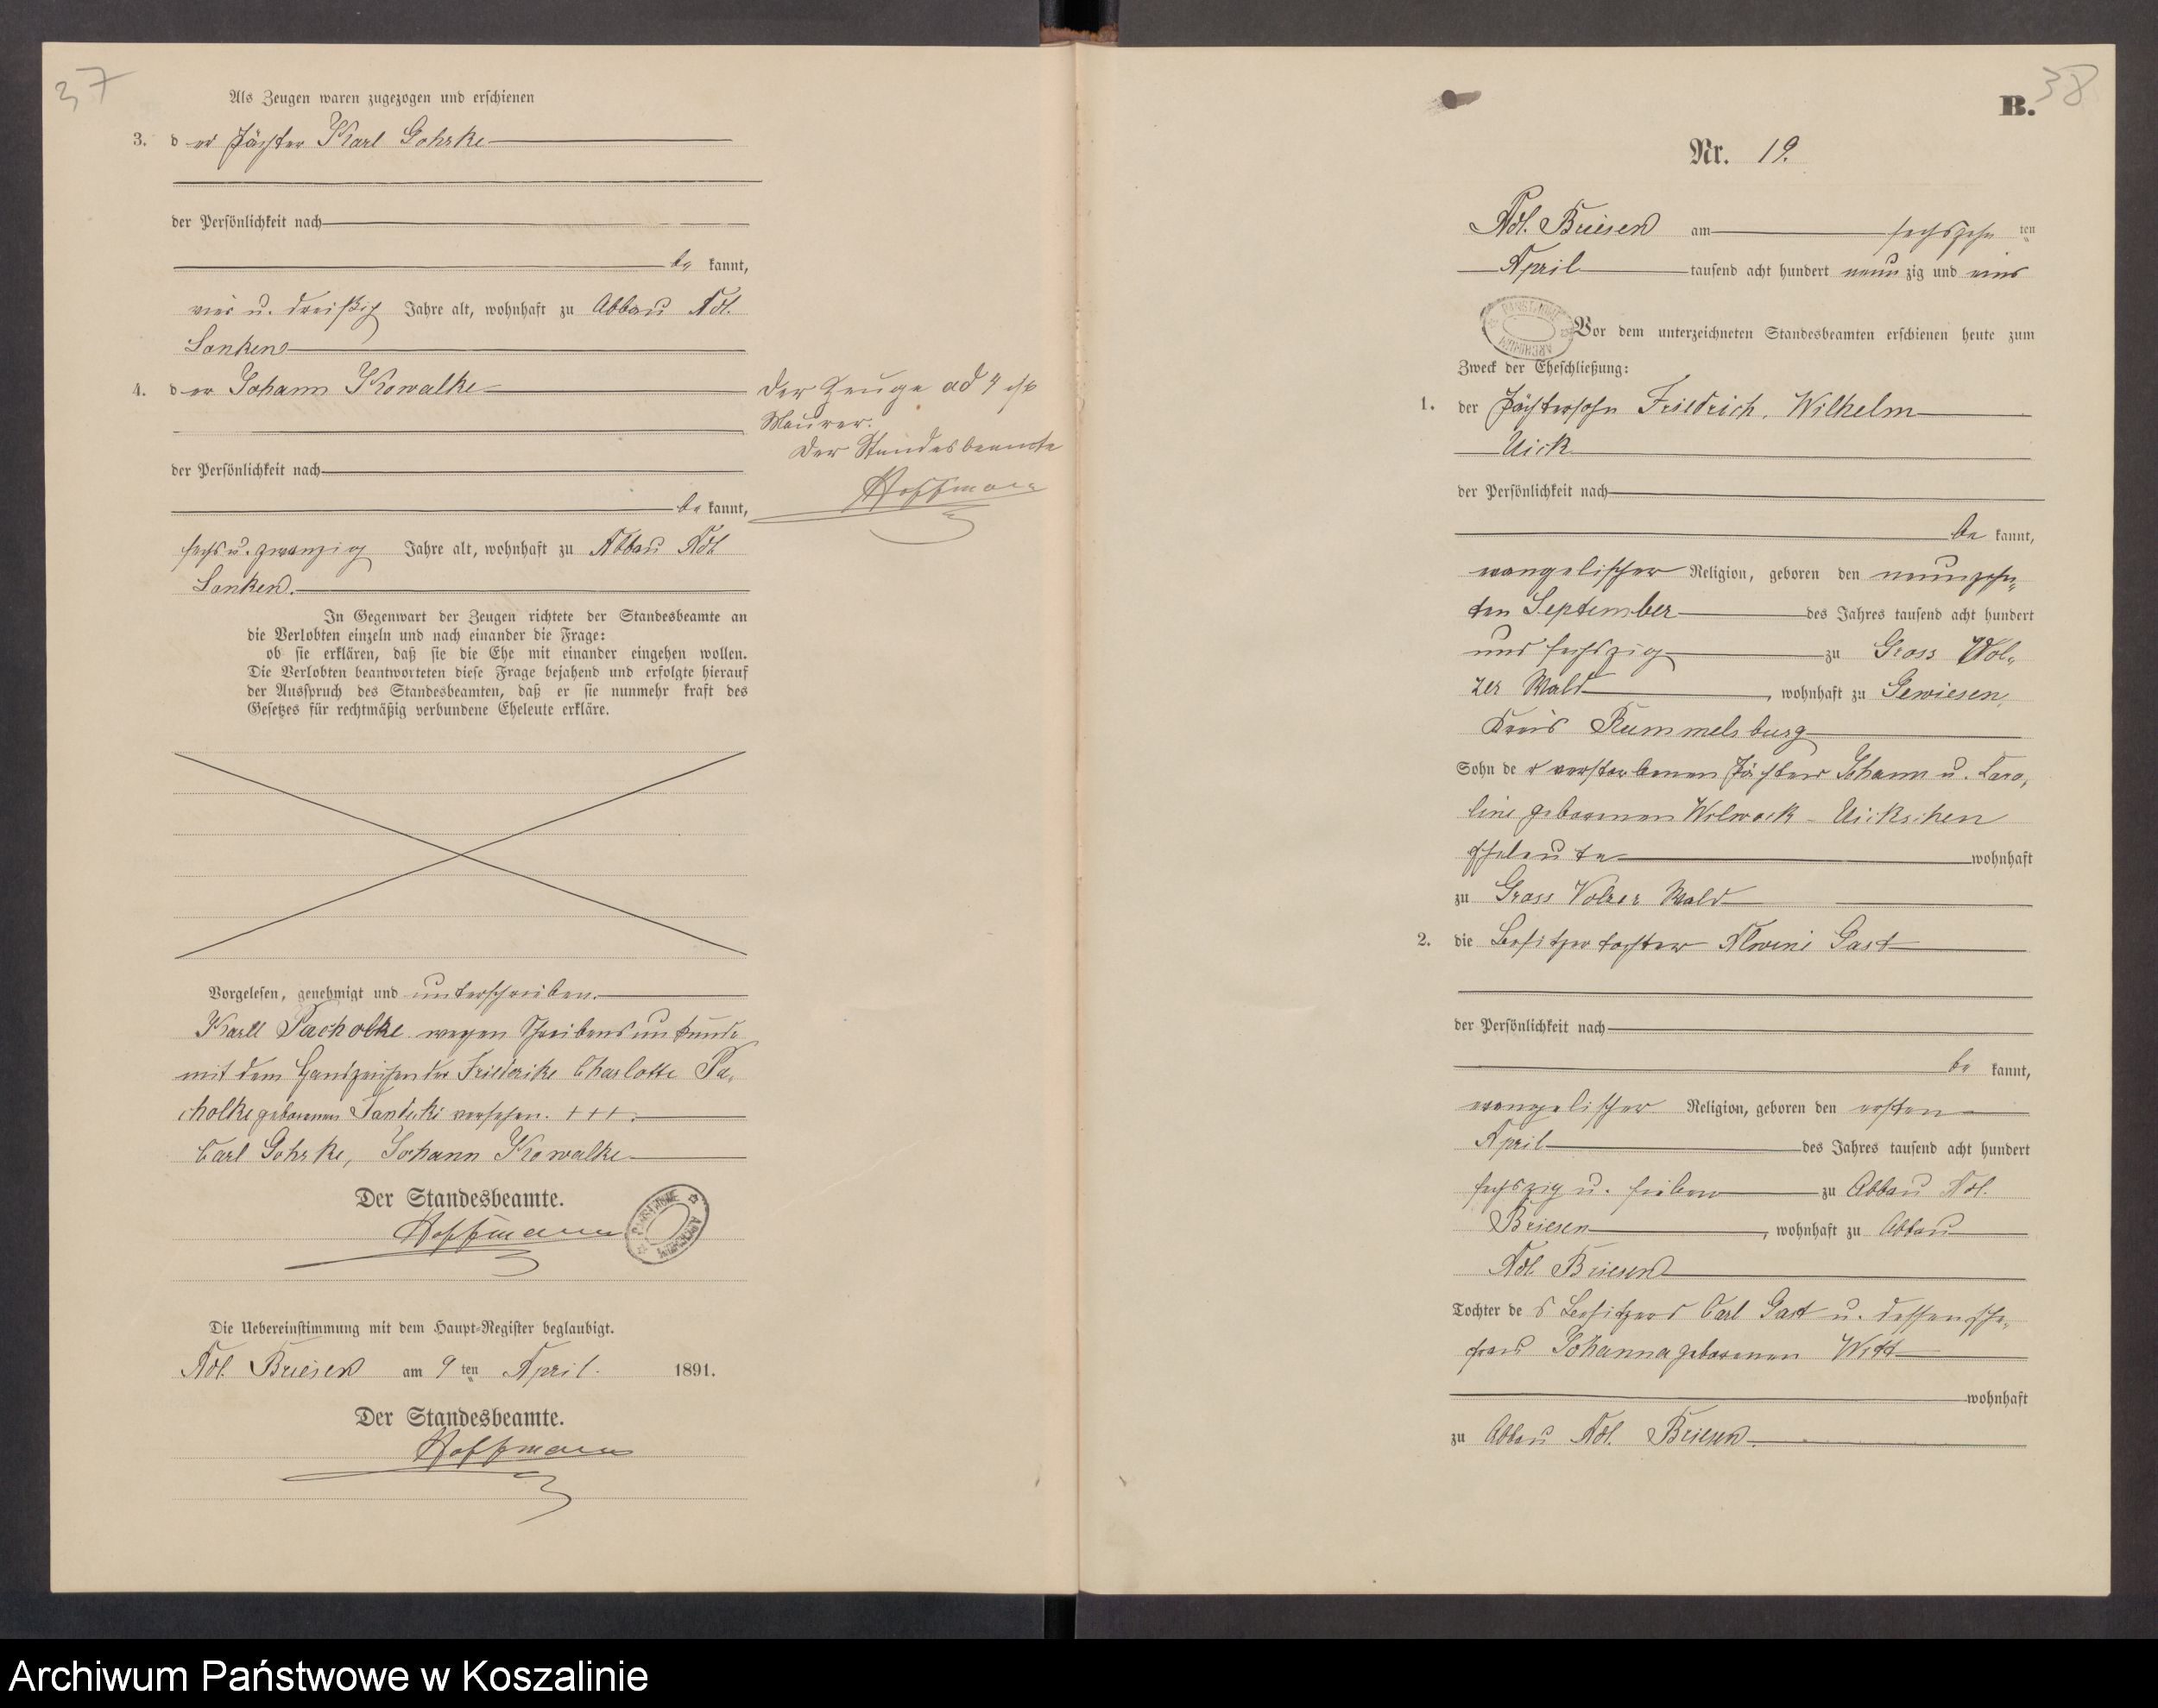 37
Als Zeugen waren zugezogen und erschienen
3. der Pächter Karl Gohrke
der Persönlichkeit nach
bekannt,
vier u. dreißig Jahre alt, wohnhaft zu Abbau Adl.
Lanken
4. der Johann Kowalke
der Persönlichkeit nach
bekannt,
sechs u. zwanzig Jahre alt, wohnhaft zu Abbau Adl.
Lanken.
Der Zeuge ad 4 ist
Maurer.
Der Standesbeamte
Hoffmann
In Gegenwart der Zeugen richtete der Standesbeamte an
die Verlobten einzeln und nach einander die Frage:
ob sie erklären, daß sie die Ehe mit einander eingehen wollen.
Die Verlobten beantworteten diese Frage bejahend und erfolgte hierauf
der Ausspruch des Standesbeamten, daß er sie nunmehr kraft des
Gesetzes für rechtmäßig verbundene Eheleute erkläre.
Vorgelesen, genehmigt und unterschrieben.
Karll Pacholke wegen Schreibensunkunde
mit dem Handzeichen der Friederike Charlotte Pa-
cholke geborenen versehen. +++.
Carl Gohrke, Johann Kowalke
Der Standesbeamte.
Hoffmann
Die Uebereinstimmung mit dem Haupt-Register beglaubigt.
Adl. Briesen am 9ten April. 1891.
Der Standesbeamte.
Hoffmann
38
B.
Nr. 19.
Adl. Briesen am sechszehnten
April tausend acht hundert neunzig und eins
Vor dem unterzeichneten Standesbeamten erschienen heute zum
Zweck der Eheschließung:
1. der Pächtersohn Friedrich, Wilhelm
Uick
der Persönlichkeit nach
bekannt,
evangelischer Religion, geboren den neunzehn-
ten September des Jahres tausend acht hundert
und sechszig zu Gross Vol-
zer Wald, wohnhaft zu Gewiesen,
Kreis Rummelsburg
Sohn der verstorbenen Pächter Johann u. Caro-
line geborenen Wolwack - Uickschen
Eheleute wohnhaft
zu Gross Volzer Wald
2. die Besitzertochter Alwine Gast
der Persönlichkeit nach
bekannt,
evangelischer Religion, geboren den ersten
April des Jahres tausend acht hundert
sechszig u. sieben zu Abbau Adl.
Briesen, wohnhaft zu Abbau
Adl. Briesen
Tochter des Besitzers Carl Gast u. dessen Ehe-
frau Johanna geborenen Witt
wohnhaft
zu Abbau Adl. Briesen.
Archiwum Państwowe w Koszalinie